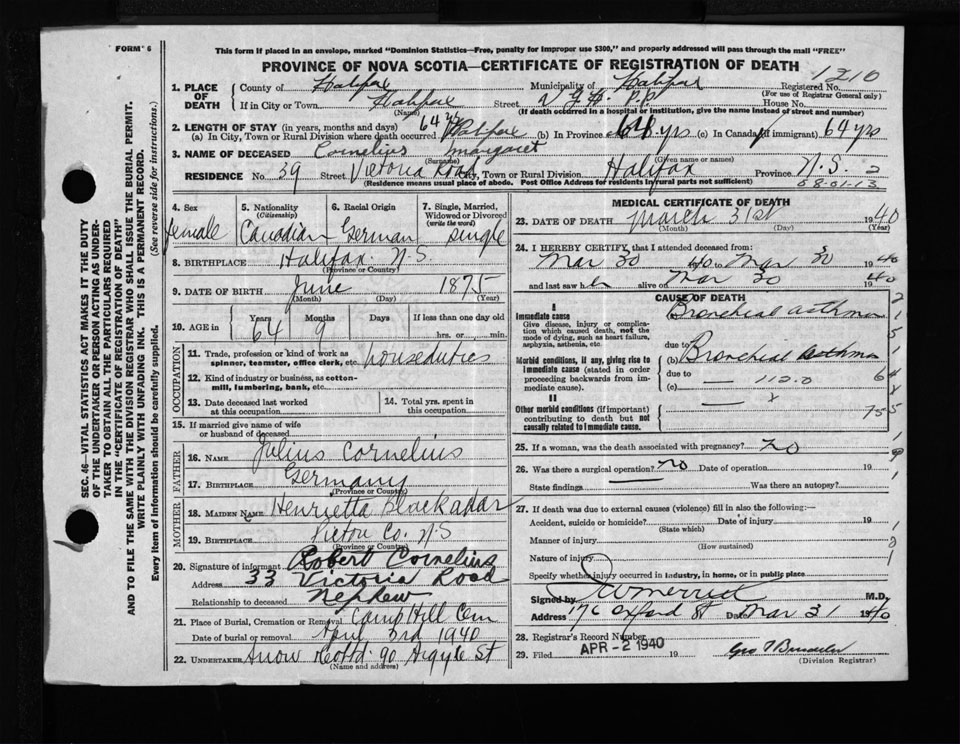 FORM 6
This form if placed in an envelope, marked "Dominion Statistics—Free, penalty for improper use $300," and properly addressed will pass through the mail "FREE"
PROVINCE OF NOVA SCOTIA—CERTIFICATE OF REGISTRATION OF DEATH
1210
1. PLACE OF DEATH County of Halifax Municipality of Halifax Registered No.
(For use of Registrar General only)
If in City or Town Halifax Street V.G.H. P.P. House No.
(Name) (If death occurred in a hospital or institution, give name instead of street and number)
2. LENGTH OF STAY (in years, months and days)
(a) In City, Town or Rural Division where death occurred 64 yrs Halifax (b) In Province 64 yrs (c) In Canada (if immigrant) 64 yrs
3. NAME OF DECEASED Cornelius Margaret
(Surname) (Given name or names)
RESIDENCE No. 39 Street Victoria Road City, Town or Rural Division Halifax Province N.S. 2
(Residence means usual place of abode. Post Office Address for residents in rural parts not sufficient) 68-01-13
4. Sex female
5. Nationality (Citizenship) Canadian
6. Racial Origin German
7. Single, Married, Widowed or Divorced (write the word) single
8. BIRTHPLACE Halifax N.S.
(Province or Country)
9. DATE OF BIRTH June 1875
(Month) (Day) (Year)
10. AGE in Years Months Days If less than one day old
64 9 hrs. or min.
OCCUPATION
11. Trade, profession or kind of work as spinner, teamster, office clerk, etc. houseduties
12. Kind of industry or business, as cotton-mill, lumbering, bank, etc.
13. Date deceased last worked at this occupation
14. Total yrs. spent in this occupation
15. If married give name of wife or husband of deceased
FATHER
16. NAME Julius Cornelius
17. BIRTHPLACE Germany
(Province or Country)
MOTHER
18. MAIDEN NAME Henrietta Blackadar
19. BIRTHPLACE Pictou Co. N.S
(Province or Country)
20. Signature of informant Robert Cornelius
Address 33 Victoria Road
Relationship to deceased Nephew
21. Place of Burial, Cremation or Removal Camp Hill Cem
Date of burial or removal April 3rd 1940
22. UNDERTAKER Snow Co Ltd. 90 Argyle St
(Name and address)
MEDICAL CERTIFICATE OF DEATH
23. DATE OF DEATH March 31st 1940
(Month) (Day) (Year)
24. I HEREBY CERTIFY that I attended deceased from:
Mar 30 40 to Mar 30 1940
and last saw her alive on Mar 30 1940
CAUSE OF DEATH
I
Immediate cause
Give disease, injury or complication which caused death, not the mode of dying, such as heart failure, asphyxia, asthenia, etc.
Bronchial asthma
due to
Morbid conditions, if any, giving rise to immediate cause (stated in order proceeding backwards from immediate cause).
(b) Bronchial Asthma
due to
(c) — 112.0
II
Other morbid conditions (if important) contributing to death but not causally related to immediate cause.
25. If a woman, was the death associated with pregnancy? no
26. Was there a surgical operation? no Date of operation 19
State findings Was there an autopsy?
27. If death was due to external causes (violence) fill in also the following:—
Accident, suicide or homicide? Date of injury 19
(State which)
Manner of injury
(How sustained)
Nature of injury
Specify whether injury occurred in industry, in home, or in public place
Signed by M.D.
Address 76 Oxford St Date Mar 31 1940
28. Registrar's Record Number
29. Filed APR - 2 1940 19
(Division Registrar)
SEC. 46—VITAL STATISTICS ACT MAKES IT THE DUTY OF THE UNDERTAKER OR PERSON ACTING AS UNDERTAKER TO OBTAIN ALL THE PARTICULARS REQUIRED IN THE "CERTIFICATE OF REGISTRATION OF DEATH" AND TO FILE THE SAME WITH THE DIVISION REGISTRAR WHO SHALL ISSUE THE BURIAL PERMIT.
WRITE PLAINLY WITH UNFADING INK. THIS IS A PERMANENT RECORD.
Every item of information should be carefully supplied. (See reverse side for instructions.)